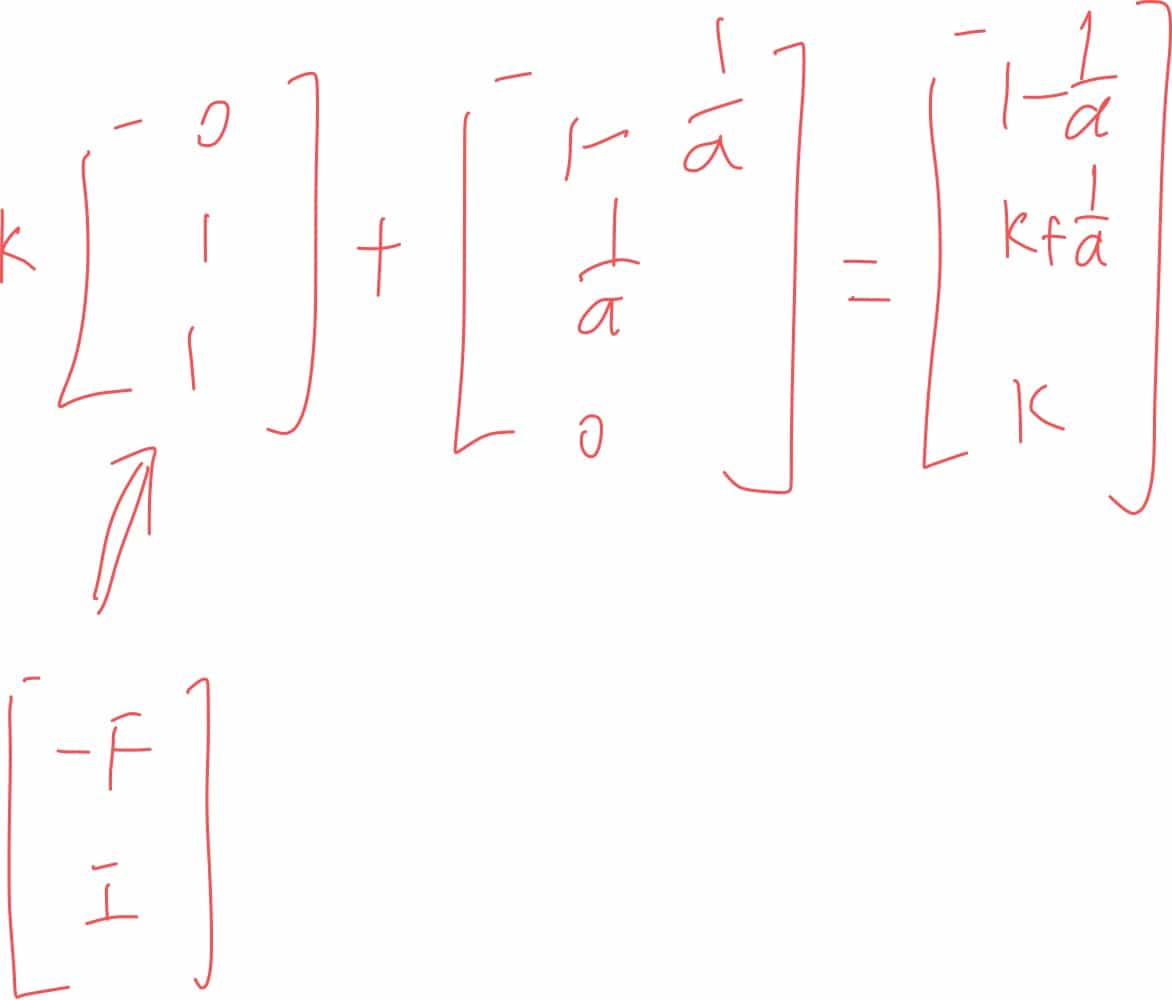 k [0 1 1] + [1 - 1/a 1/a 0] = [1 - 1/a k + 1/a k]
[-F I]